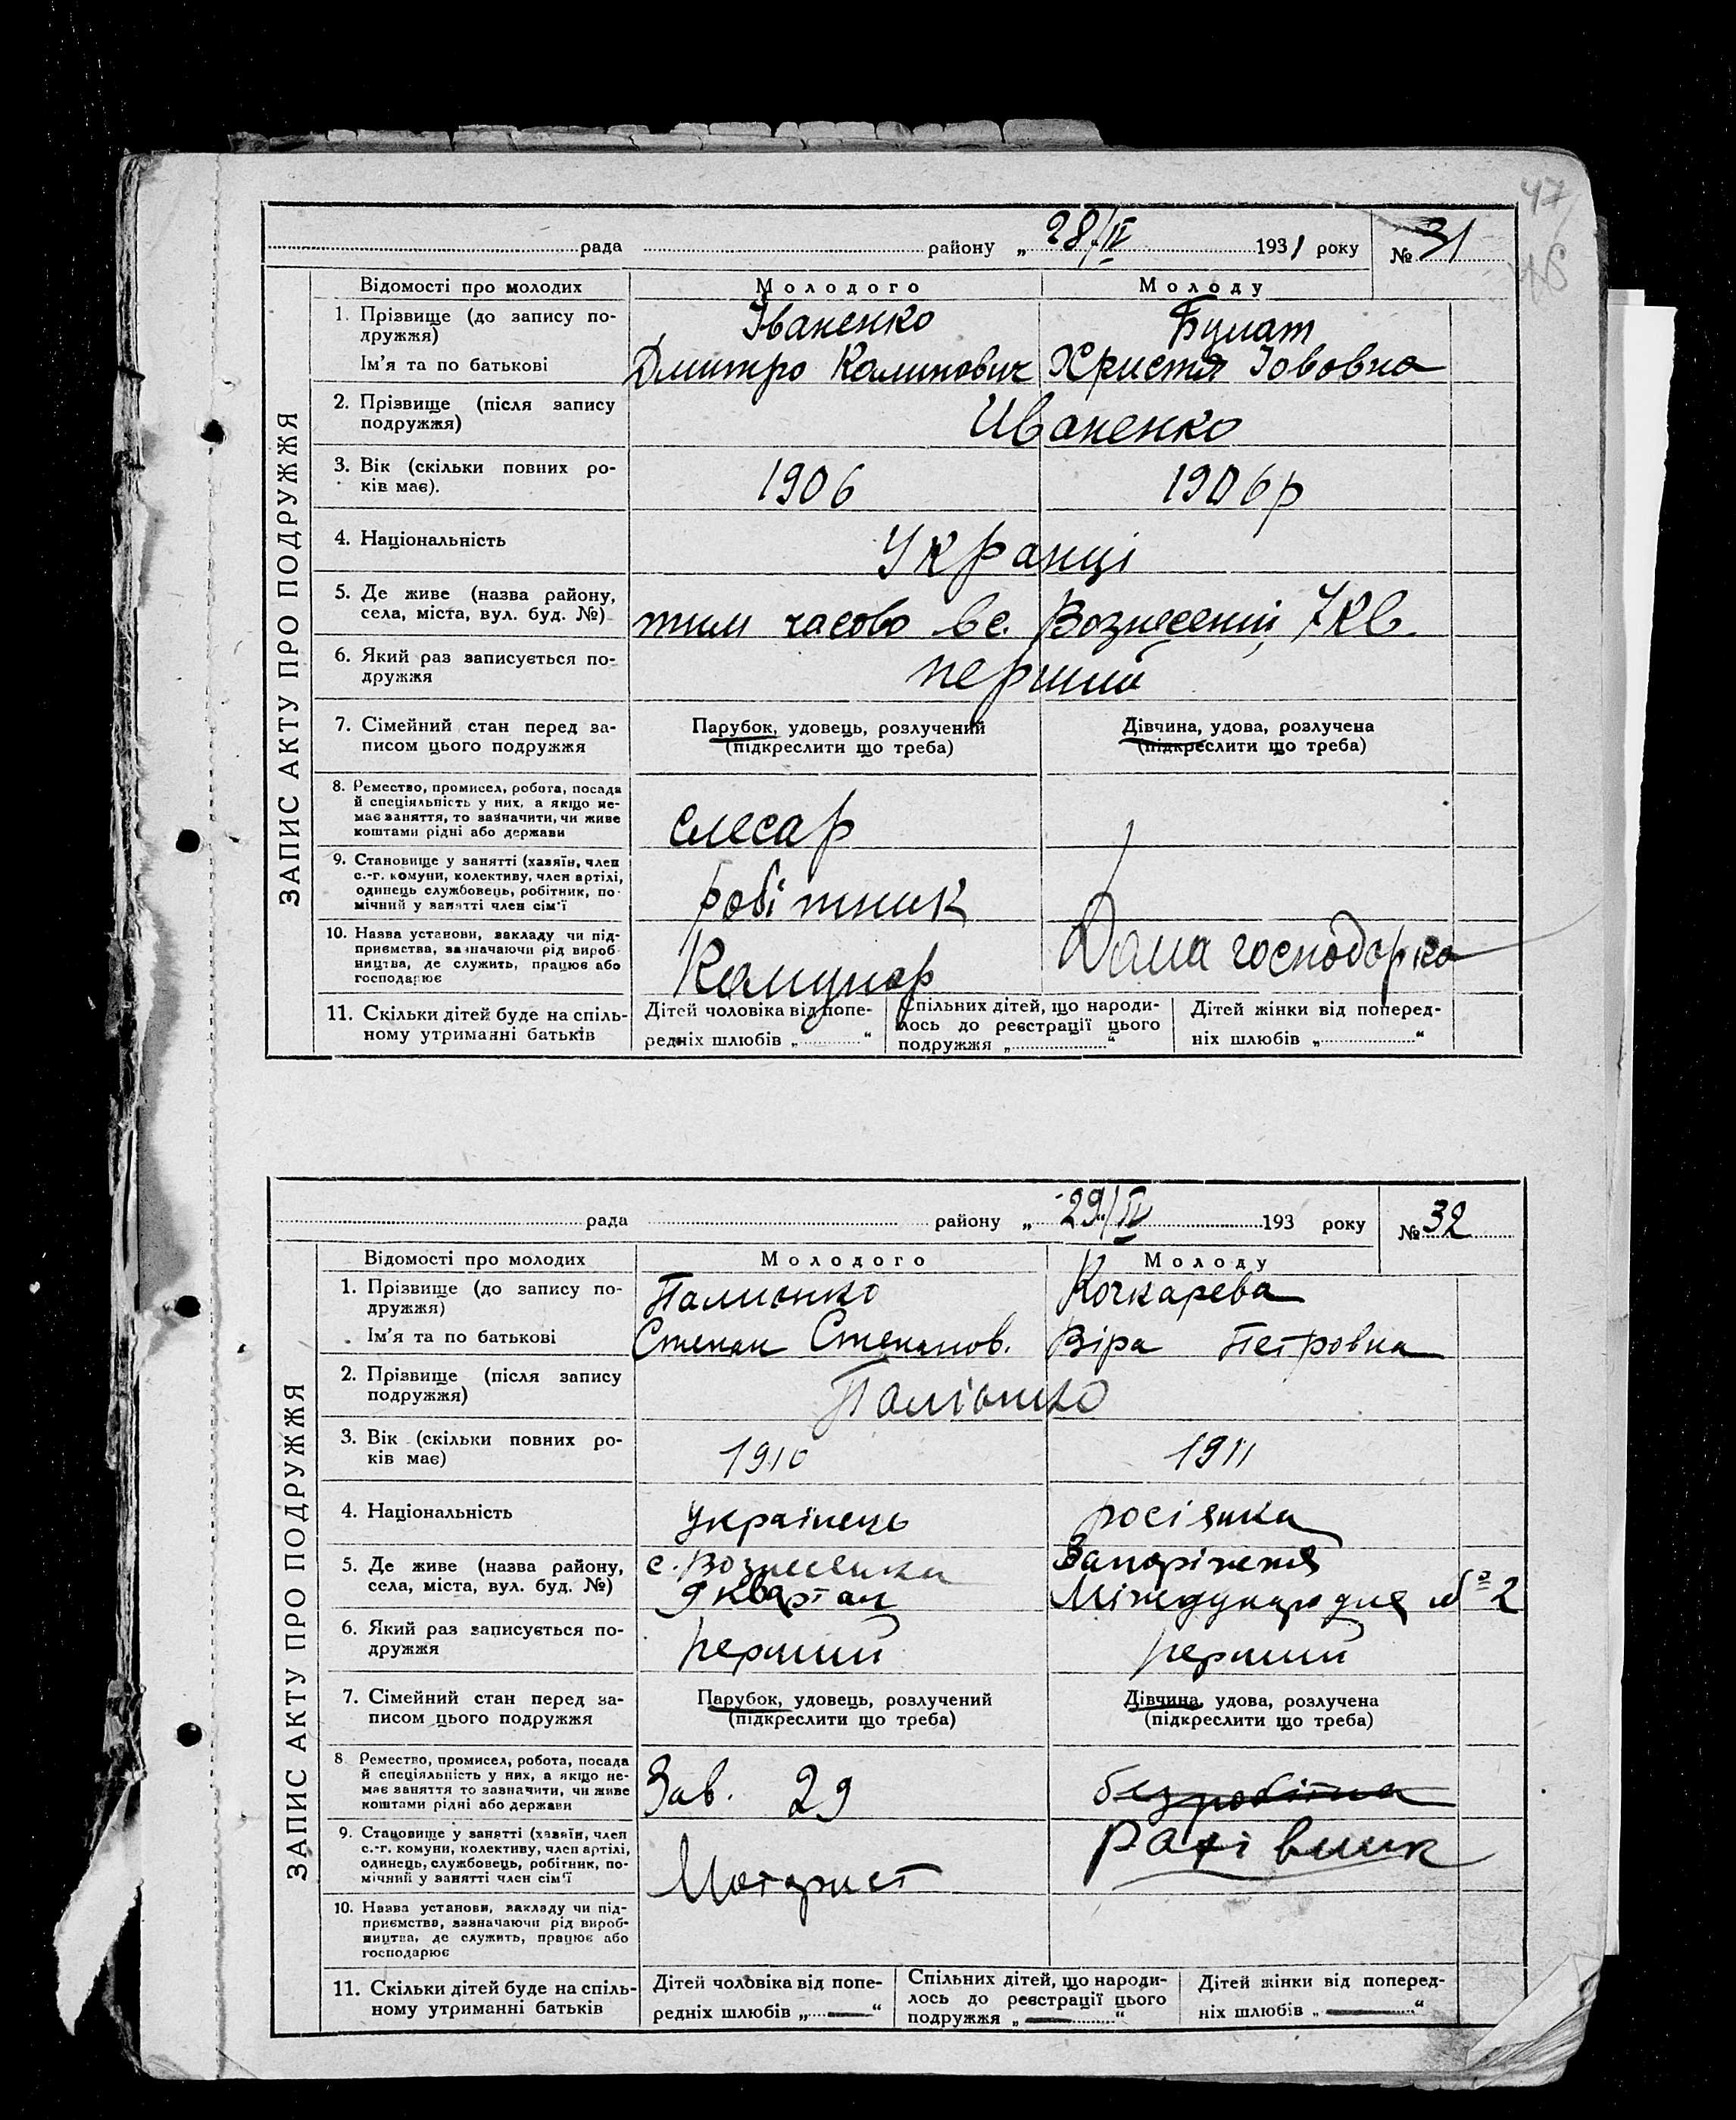 47
46
рада района „ 28/IV 1931 року № 31
ЗАПИС АКТУ ПРО ПОДРУЖЖЯ
Відомості про молодих Молодого Молоду
1. Прізвище (до запису по-
дружжя) Іваненко Булат
Ім'я та по батькові Дмитро Калинович Христя Іововна
2. Прізвище (після запису
подружжя) Иваненко
3. Вік (скільки повних ро-
ків має). 1906 1906р
4. Національність Укранці
5. Де живе (назва району,
села, міста, вул. буд. №) тим часово в с. Вознесенці 7 кв.
6. Який раз записується по-
дружжя перший
7. Сімейний стан перед за-
писом цього подружжя
Парубок, удовець, розлучений
(підкреслити що треба)
Дівчина, удова, розлучена
(підкреслити що треба)
8. Ремество, промисел, робота, посада
й спеціяльність у них, а якщо не-
має заняття, то зазначити, чи живе
коштами рідні або держави
слесар
9. Становище у занятті (хазяїн, член
с.-г. комуни, колективу, член артілі,
одинець службовець, робітник, по-
мічний у занятті член сім'ї
робітник
10. Назва установи, закладу чи під-
приємства, зазначаючи рід вироб-
ництва, де служить, працює або
господарює
Комунар Дома господорка
11. Скільки дітей буде на спіль-
ному утриманні батьків
Дітей чоловіка від попе-
редніх шлюбів „ “
Спільних дітей, що народи-
лось до реєстрації цього
подружжя „ “
Дітей жінки від поперед-
ніх шлюбів „ “
рада району „ 29/IV 193 року № 32
ЗАПИС АКТУ ПРО ПОДРУЖЖЯ
Відомості про молодих Молодого Молоду
1. Прізвище (до запису по-
дружжя) Кочкарева
Ім'я та по батькові Степан Степанов. Віра Петровна
2. Прізвище (після запису
подружжя)
3. Вік (скільки повних ро-
ків має) 1910 1911
4. Національність українець росіянка
5. Де живе (назва району,
села, міста, вул. буд. №)
с. Вознесенка
9 квартал
Запоріжжя
Міждународня № 2
6. Який раз записується по-
дружжя перший перший
7. Сімейний стан перед за-
писом цього подружжя
Парубок, удовець, розлучений
(підкреслити що треба)
Дівчина, удова, розлучена
(підкреслити що треба)
8. Ремество, промисел, робота, посада
й спеціяльність у них, а якщо не-
має заняття то зазначити, чи живе
коштами рідні або держави
Зав. 29 безробітна
9. Становище у занятті (хазяїн, член
с.-г. комуни, колективу, член артілі,
одинець, службовець, робітник, по-
мічний у занятті член сім'ї
Моторист
10. Назва установи, закладу чи під-
приємства, зазначаючи рід вироб-
ництва, де служить, працює або
господарює
11. Скільки дітей буде на спіль-
ному утриманні батьків
Дітей чоловіка від попе-
редніх шлюбів „ — “
Спільних дітей, що народи-
лось до реєстрації цього
подружжя „ — “
Дітей жінки від поперед-
ніх шлюбів „ — “